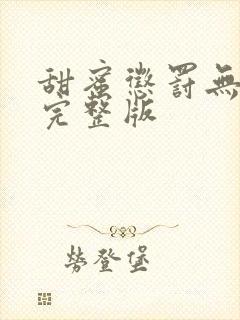 甜蜜懲罰無
完整版
勞登堡